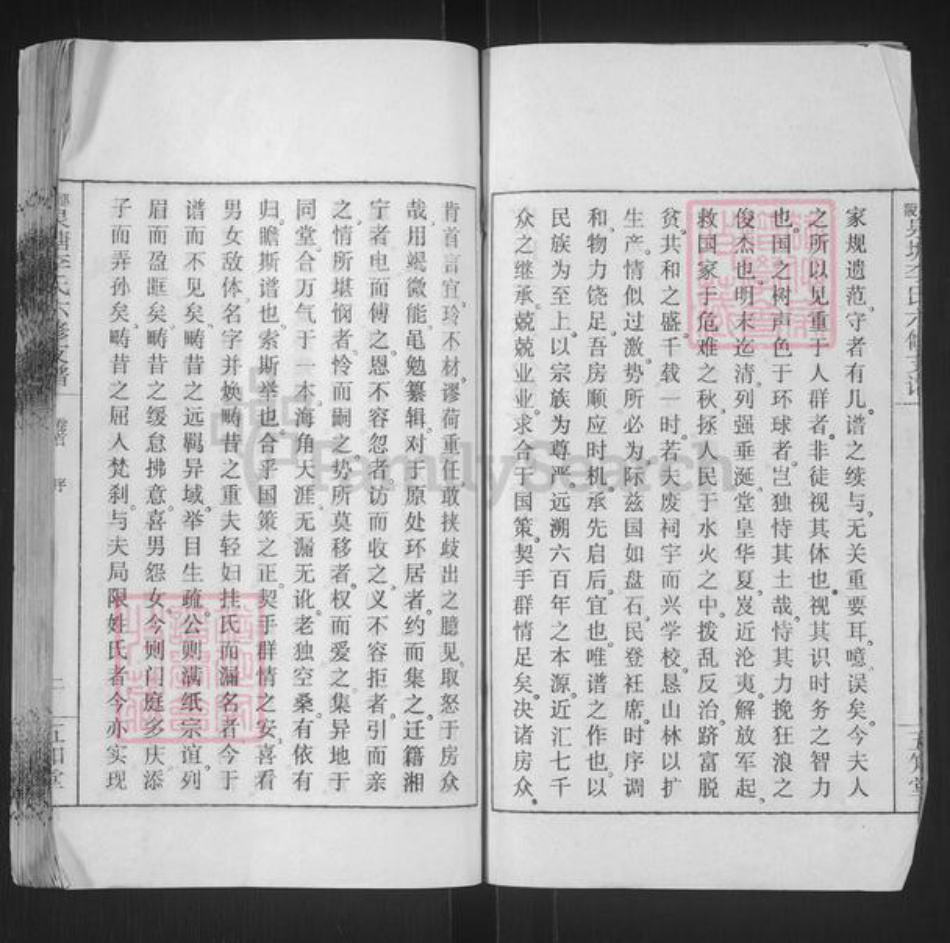 家规遗范。守者有几。谱之续与。无关重要耳。噫误矣。今夫人
之所以见重于人群者。非徒视其休也。视其识时务之智力
也。国之树声色于环球者。岂独恃其土哉。恃其力挽狂浪之
俊杰也。明末迄清。列强垂涎。堂皇华夏。岌近沦夷。解放军起。
救国家于危难之秋。拯人民于水火之中。拨乱反治。跻富脱
贫。共和之盛。千载一时。若夫废祠宇而兴学校。恳山林以扩
生产。情似过激。势所必为。际兹国如盘石。民登衽席。时序调
和。物力饶足。吾房顺应时机。承先启后。宜也。唯谱之作也。以
民族为至上。以宗族为尊严。远溯六百年之本源。近汇七千
众之继承。兢兢业业。求合于国策。契乎群情足矣。决诸房众。
肯首言宜。玲不材。谬荷重任。敢挟歧出之臆见。取怒于房众
哉。用竭微能。黾勉纂辑。对于原处环居者。约而集之。迁籍湘
宁者。电而傅之。恩不容忽者。访而收之。义不容拒者。引而亲
之。情所堪悯者。怜而嗣之。势所莫移者。权而爱之。集异地于
同堂。合万气于一本。海角天涯。无漏无讹。老独空桑。有依有
归。瞻斯谱也。索斯举也。合乎国策之正。契乎群情之安。喜看
男女敌体。名字并焕。畴昔之重夫轻妇。挂氏而漏名者。今于
谱而不见矣。畴昔之远羁异域。举目生疏。公则满纸宗谊。列
眉而盈眶矣。畴昔之缓怠拂意。喜男怨女。今则闩庭多庆。添
子而弄孙矣。畴昔之屈人梵刹。与夫局限姓氏者。今亦实现
卷首
序
二